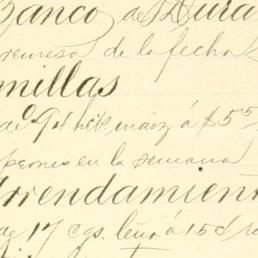 Banco de Dura
remesa de la fecha
millas
de 94 hect. maiz á $5.5
peones en la semana
Arrendamien
de 17 cgs. leña á 15 d re